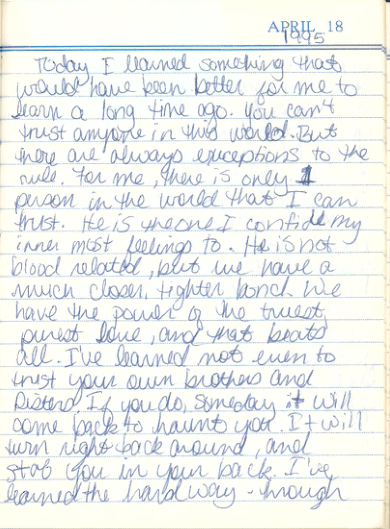 APRIL 18
1995
Today I learned something that
would have been better for me to
learn a long time ago. You can't
trust anyone in this world. But
there are always exceptions to the
rule. For me, there is only 1
person in the world that I can
trust. He is the one I confide my
inner most feelings to. He is not
blood related, but we have a
much closer, tighter bond. We
have the power of the truest,
purest love, and that beats
all. I've learned not even to
trust your own brothers and
sisters. If you do, someday it will
come back to haunt you. It will
turn right back around, and
stab you in your back. I've
learned the hard way - through